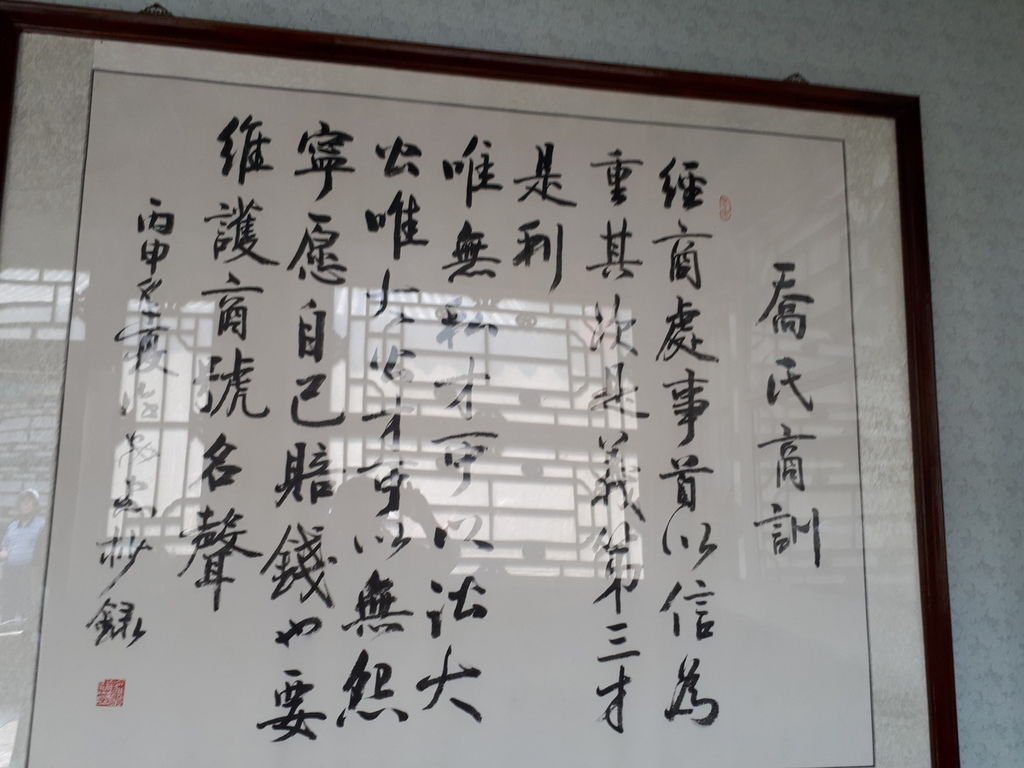 喬氏商訓
經商處事首以信為
重其次是義第三才
是利
唯無私才可以話大
公唯大公才可以無怨
寧愿自己賠錢也要
維護商號名聲
丙申 夏 抄録